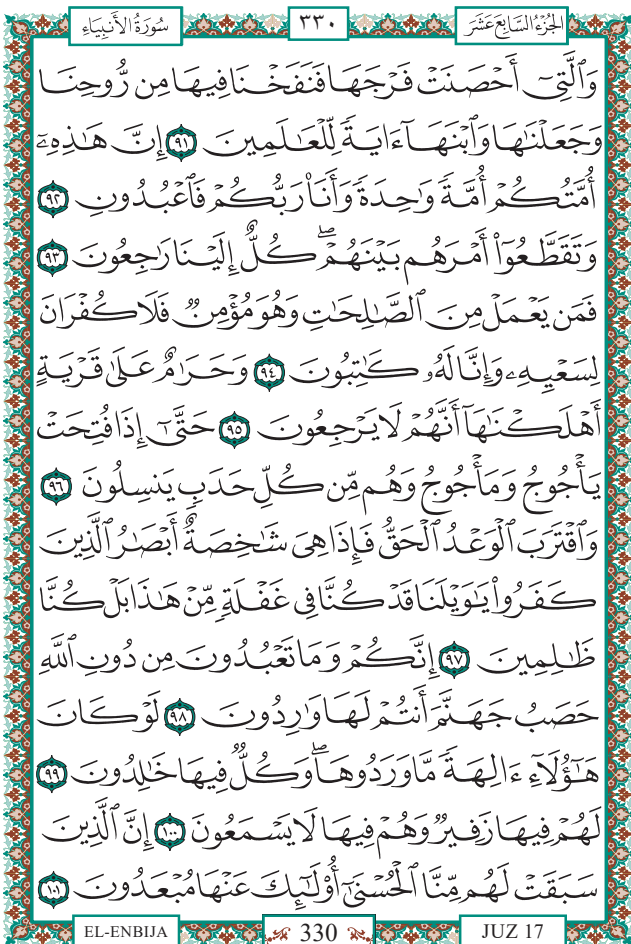 سُورَةُ الأَنبِيَاءِ ٣٣٠ الجُزْءُ السَّابِعَ عَشَرَ
وَٱلَّتِىٓ أَحْصَنَتْ فَرْجَهَا فَنَفَخْنَا فِيهَا مِن رُّوحِنَا
وَجَعَلْنَٰهَا وَٱبْنَهَآ ءَايَةً لِّلْعَٰلَمِينَ ٩١ إِنَّ هَٰذِهِۦٓ
أُمَّتُكُمْ أُمَّةً وَٰحِدَةً وَأَنَا۠ رَبُّكُمْ فَٱعْبُدُونِ ٩٢
وَتَقَطَّعُوٓا۟ أَمْرَهُم بَيْنَهُمْ ۖ كُلٌّ إِلَيْنَا رَٰجِعُونَ ٩٣
فَمَن يَعْمَلْ مِنَ ٱلصَّٰلِحَٰتِ وَهُوَ مُؤْمِنٌ فَلَا كُفْرَانَ
لِسَعْيِهِۦ وَإِنَّا لَهُۥ كَٰتِبُونَ ٩٤ وَحَرَٰمٌ عَلَىٰ قَرْيَةٍ
أَهْلَكْنَٰهَآ أَنَّهُمْ لَا يَرْجِعُونَ ٩٥ حَتَّىٰٓ إِذَا فُتِحَتْ
يَأْجُوجُ وَمَأْجُوجُ وَهُم مِّن كُلِّ حَدَبٍ يَنسِلُونَ ٩٦
وَٱقْتَرَبَ ٱلْوَعْدُ ٱلْحَقُّ فَإِذَا هِىَ شَٰخِصَةٌ أَبْصَٰرُ ٱلَّذِينَ
كَفَرُوا۟ يَٰوَيْلَنَا قَدْ كُنَّا فِى غَفْلَةٍ مِّنْ هَٰذَا بَلْ كُنَّا
ظَٰلِمِينَ ٩٧ إِنَّكُمْ وَمَا تَعْبُدُونَ مِن دُونِ ٱللَّهِ
حَصَبُ جَهَنَّمَ أَنتُمْ لَهَا وَٰرِدُونَ ٩٨ لَوْ كَانَ
هَٰٓؤُلَآءِ ءَالِهَةً مَّا وَرَدُوهَا ۖ وَكُلٌّ فِيهَا خَٰلِدُونَ ٩٩
لَهُمْ فِيهَا زَفِيرٌ وَهُمْ فِيهَا لَا يَسْمَعُونَ ١٠٠ إِنَّ ٱلَّذِينَ
سَبَقَتْ لَهُم مِّنَّا ٱلْحُسْنَىٰٓ أُو۟لَٰٓئِكَ عَنْهَا مُبْعَدُونَ ١٠١
EL-ENBIJA 330 JUZ 17